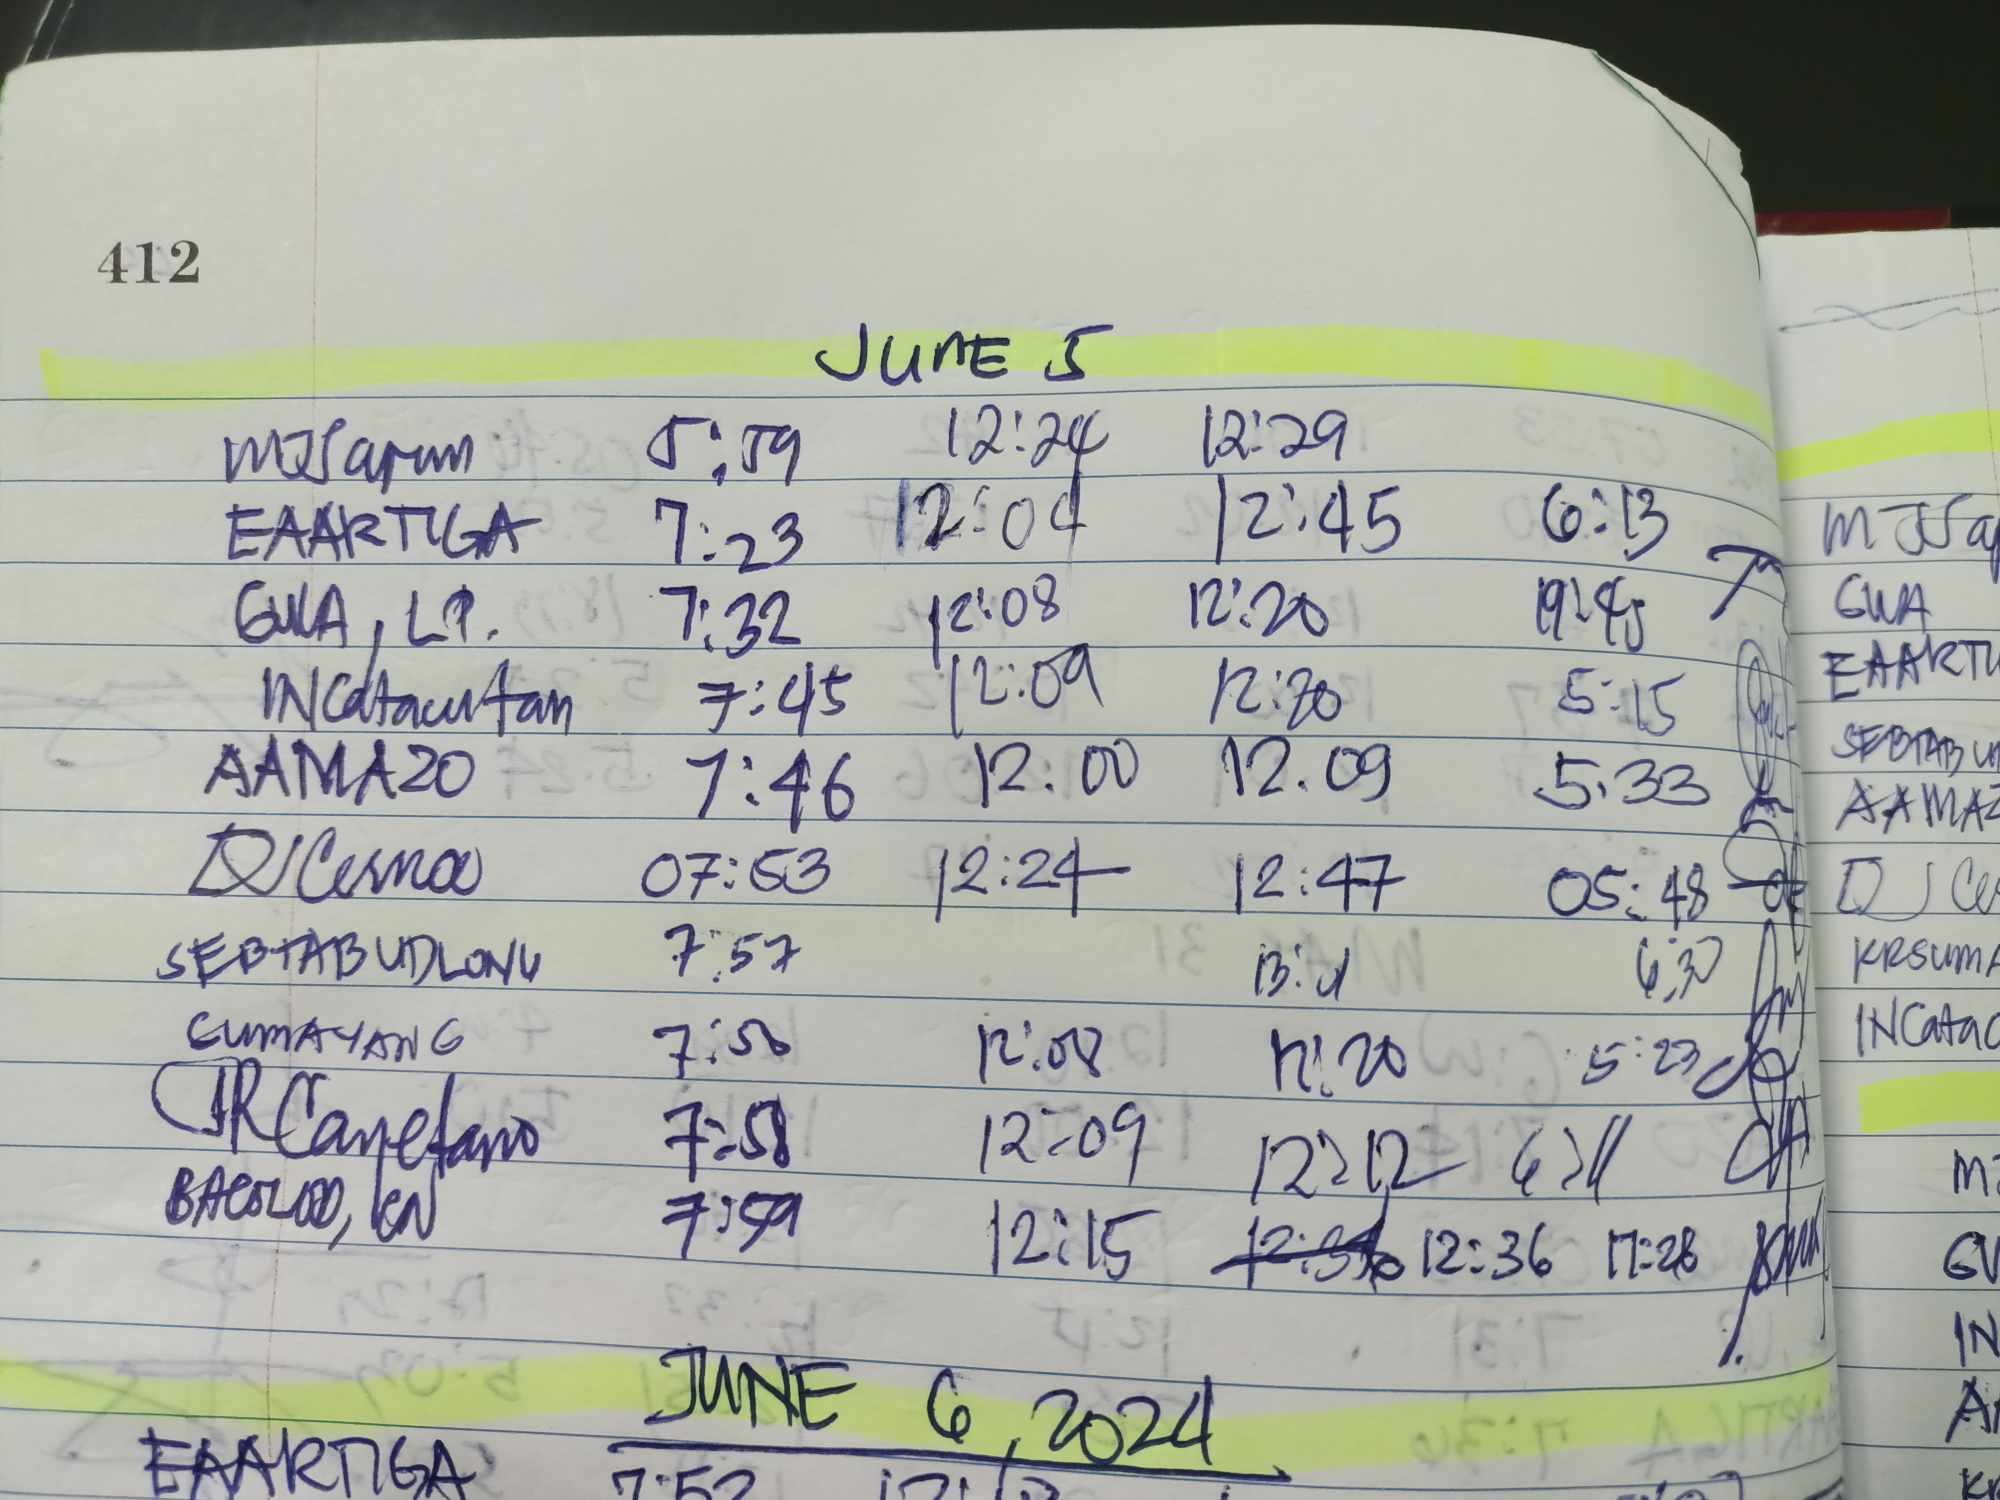 412
JUNE 5
MJSapun 5:59 12:24 12:29
EAARTIGA 7:23 12:04 12:45 6:13
GWA, LP. 7:32 12:08 12:20 19:45
INCatacutan 7:45 12:09 12:20 5:15
AAMAZO 7:46 12:00 12.09 5.33
DJCesnoo 07:53 12:24 12:47 05:48
SEBTABUDLONG 7:57 13:01 6:30
CUMAYANG 7:58 12:08 12:20 5:23
JRCayetano 7:58 12:09 12:12 6:11
BACOLOD, KN 7:59 12:15 12:36 17:28
JUNE 6, 2024
EAARTIGA 7:52
MJSap
GWA
EAARTI
SEBTABU
AAMAZ
DJ Ces
KRSUMA
INCatac